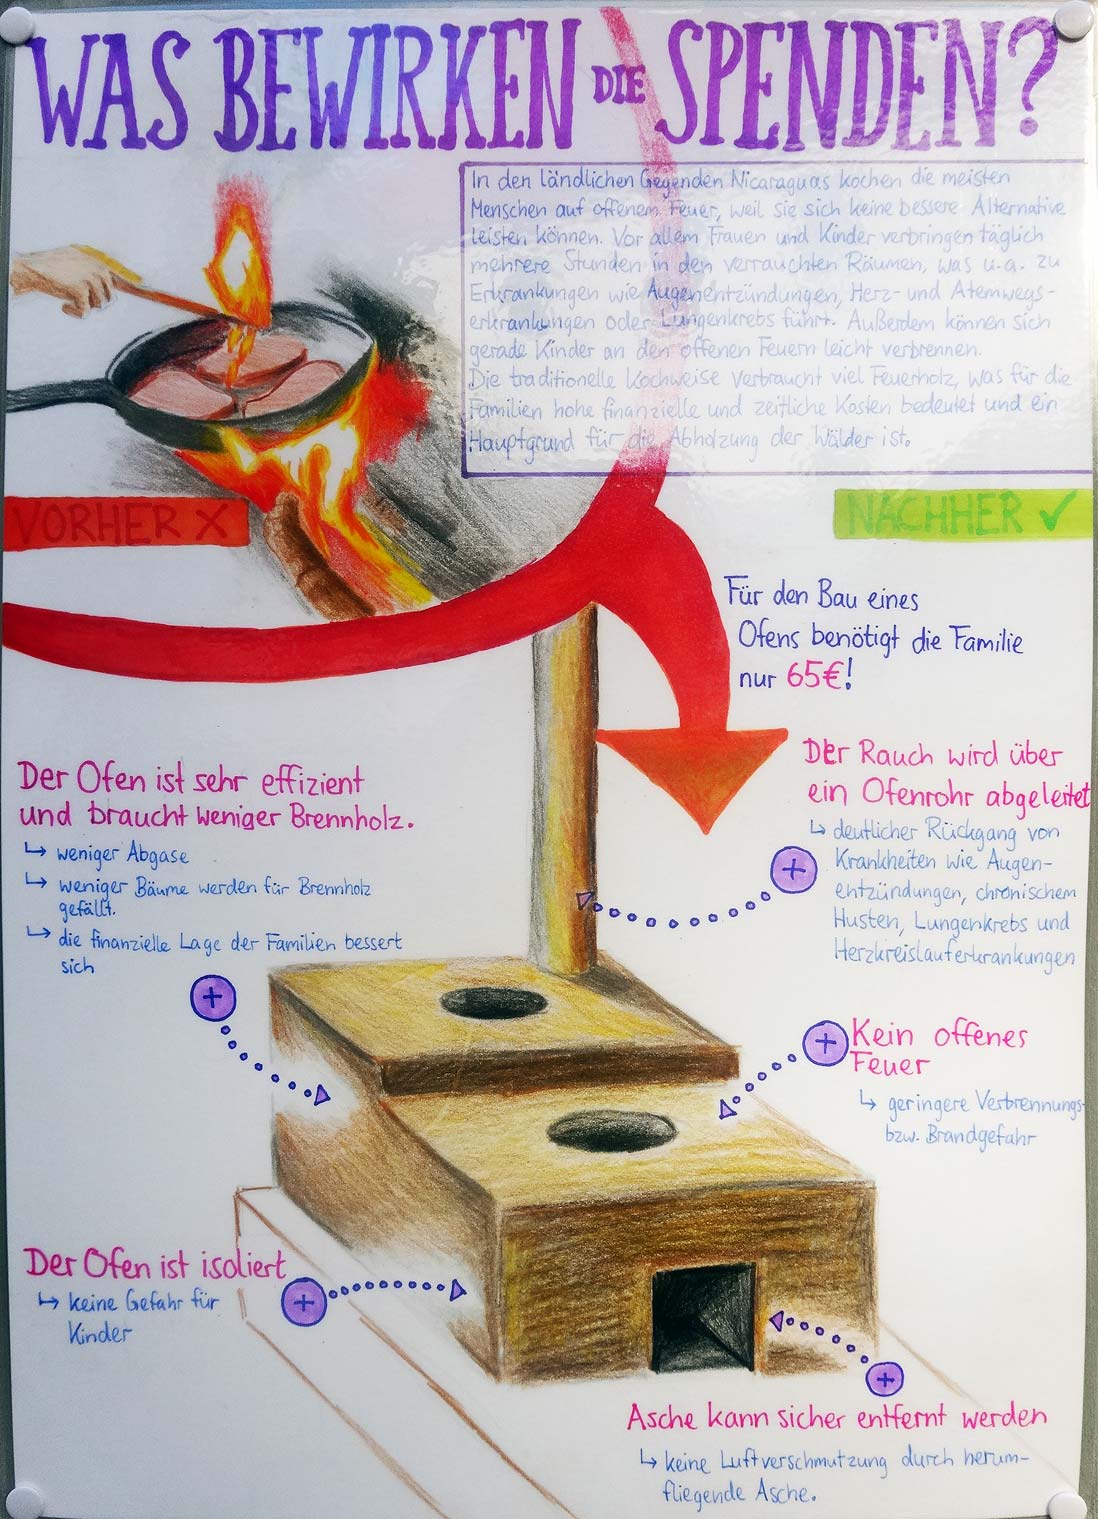 WAS BEWIRKEN DIE SPENDEN?
In den ländlichen Gegenden Nicaraguas kochen die meisten
Menschen auf offenem Feuer, weil sie sich keine bessere Alternative
leisten können. Vor allem Frauen und Kinder verbringen täglich
mehrere Stunden in den verrauchten Räumen, was u.a. zu
Erkrankungen wie Augenentzündungen, Herz- und Atemwegs-
erkrankungen oder Lungenkrebs führt. Außerdem können sich
gerade Kinder an den offenen Feuern leicht verbrennen.
Die traditionelle Kochweise verbraucht viel Feuerholz, was für die
Familien hohe finanzielle und zeitliche Kosten bedeutet und ein
Hauptgrund für die Abholzung der Wälder ist.
VORHER X
NACHHER ✓
Für den Bau eines
Ofens benötigt die Familie
nur 65€!
Der Ofen ist sehr effizient
und braucht weniger Brennholz.
↳ weniger Abgase
↳ weniger Bäume werden für Brennholz
gefällt.
↳ die finanzielle Lage der Familien bessert
sich
Der Rauch wird über
ein Ofenrohr abgeleitet
↳ deutlicher Rückgang von
Krankheiten wie Augen-
entzündungen, chronischem
Husten, Lungenkrebs und
Herzkreislauferkrankungen
Kein offenes
Feuer
↳ geringere Verbrennungs-
bzw. Brandgefahr
Der Ofen ist isoliert
↳ keine Gefahr für
Kinder
Asche kann sicher entfernt werden
↳ keine Luftverschmutzung durch herum-
fliegende Asche.